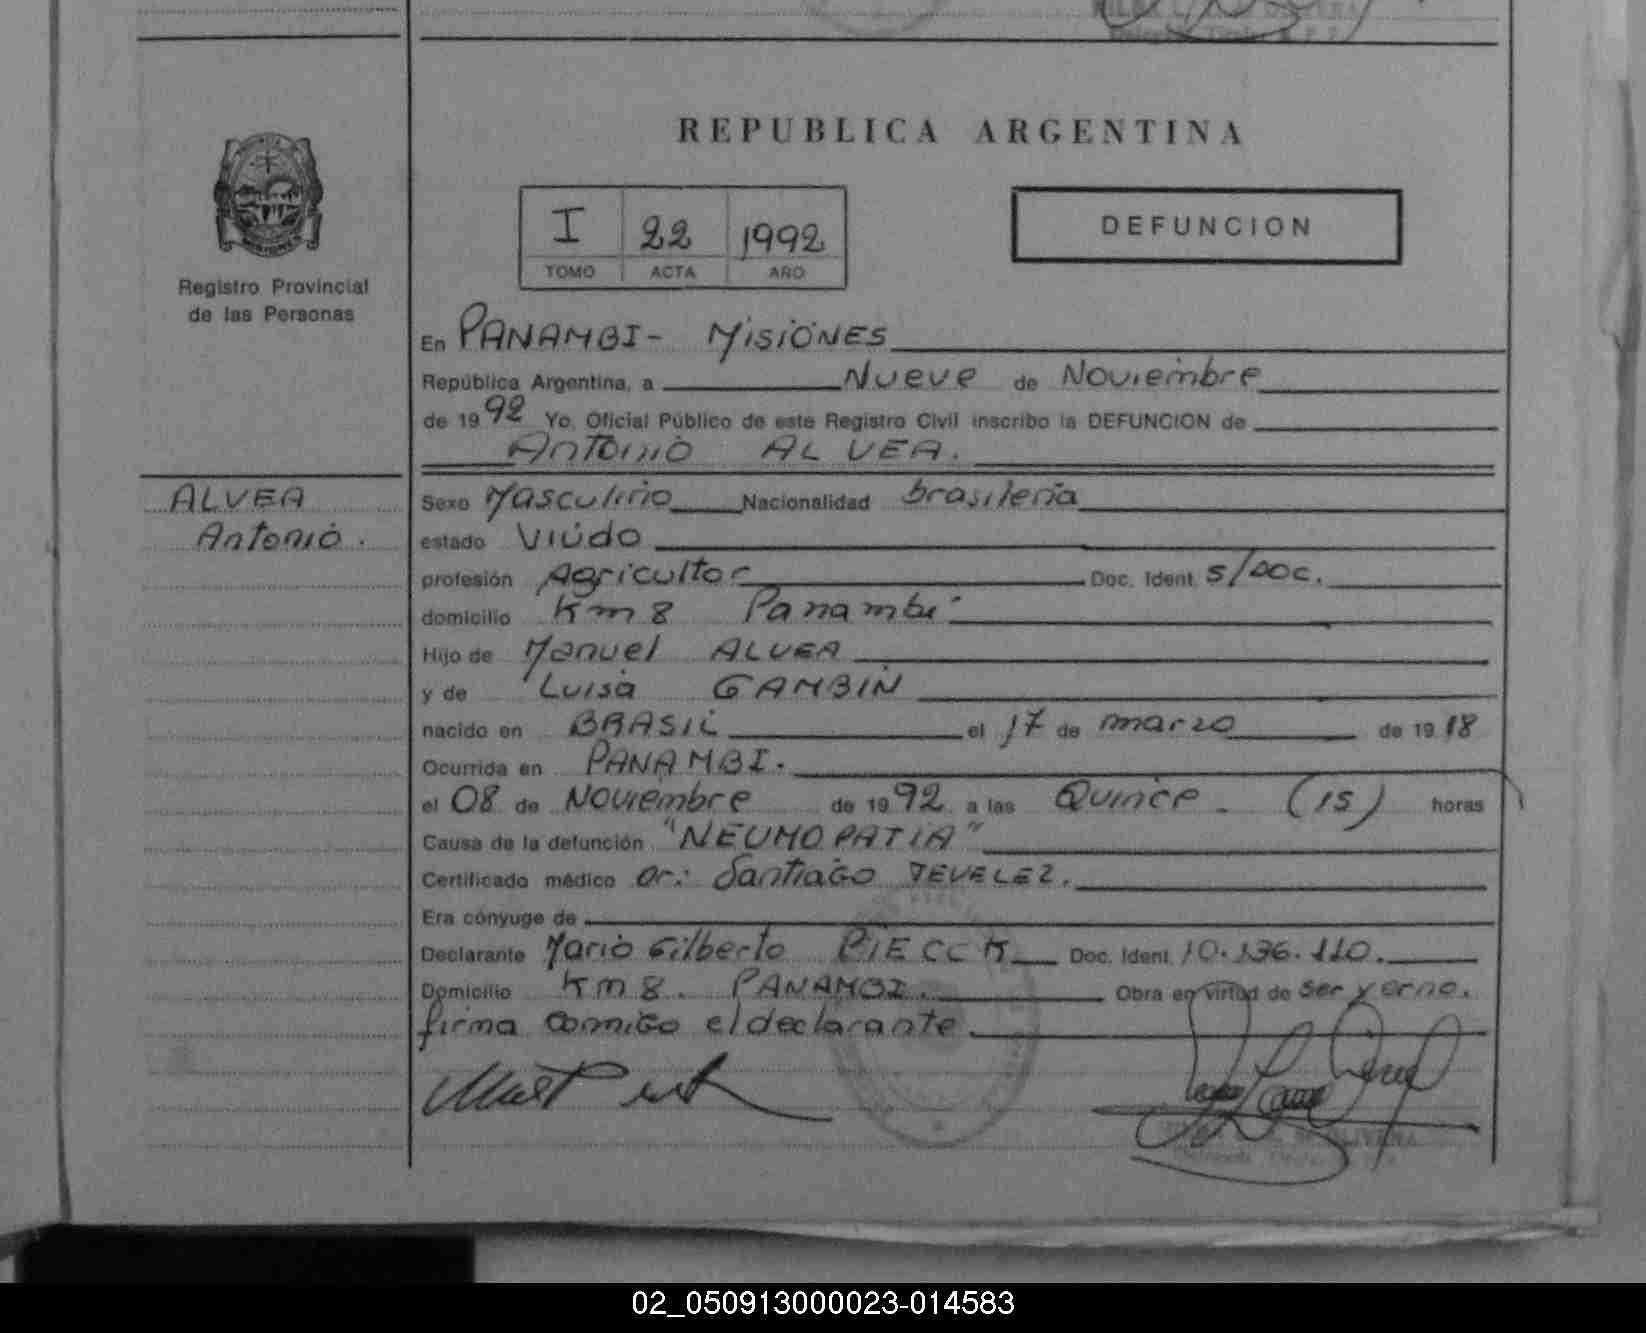 REPUBLICA ARGENTINA
I 22 1992
TOMO ACTA AÑO
DEFUNCION
Registro Provincial
de las Personas
En PANAMBI- MisiONES
República Argentina, a Nueve de Noviembre
de 1992 Yo, Oficial Público de este Registro Civil inscribo la DEFUNCION de
Antonio ALVEA.
ALVEA
Antonio.
Sexo Masculino Nacionalidad brasileña
estado Viudo
profesión Agricultor Doc. Ident. S/Doc.
domicilio Km 8 Panambi
Hijo de Manuel ALVEA
y de Luisa GAMBIN
nacido en BRASIL el 17 de marzo de 1918
Ocurrida en PANAMBI.
el 08 de Noviembre de 1992 a las Quince. (15) horas
Causa de la defunción "NEUMOPATIA"
Certificado médico Dr: Santiago TEVELEZ.
Era cónyuge de
Declarante Mario Gilberto PIECCK Doc. Ident. 10.136.110.
Domicilio Km 8. PANAMBI. Obra en virtud de ser yerno.
firma conmigo el declarante
02_050913000023-014583